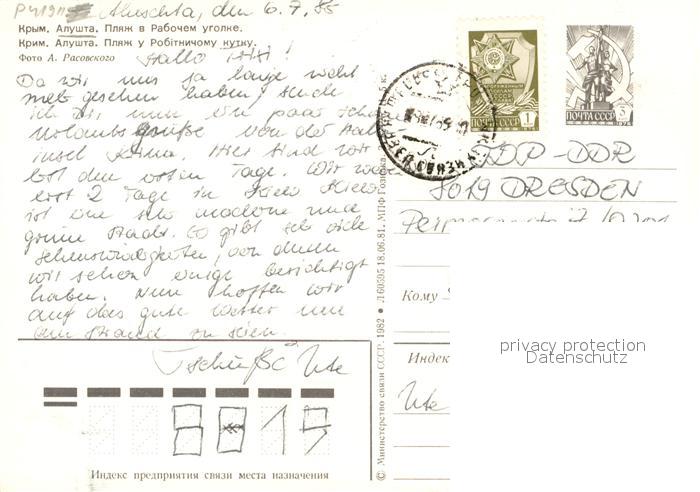 P41911
Aluschta, den 6.7.85
Крым. Алушта. Пляж в Рабочем уголке.
Крим. Алушта. Пляж у Робітничому кутку.
Фото А. Расовского
Hallo
Da wir uns so lange nicht
mehr gesehen haben, sende
ich dir nun ein paar
Urlaubsgrüße von der
insel Krim. Hier sind wir
erst den ersten Tage. Wir
erst 2 Tage in Kiew Kiew
ist eine sehr moderne und
grüne Stadt. Es gibt sehr viele
Sehenswürdigkeiten, von denen
wir schon einige besichtigt
haben. Nun hoffen wir
auf das gute Wetter um
am Strand zu
Tschüß Ute
ПОЧТА СССР 1
ПОЧТА СССР 5
DDR
8019 DRESDEN
Кому
Индекс
Ute
privacy protection
Datenschutz
8019
Индекс предприятия связи места назначения
© Министерство связи СССР. 1982 • Л 60395 18.06.81. МПФ Гознака.